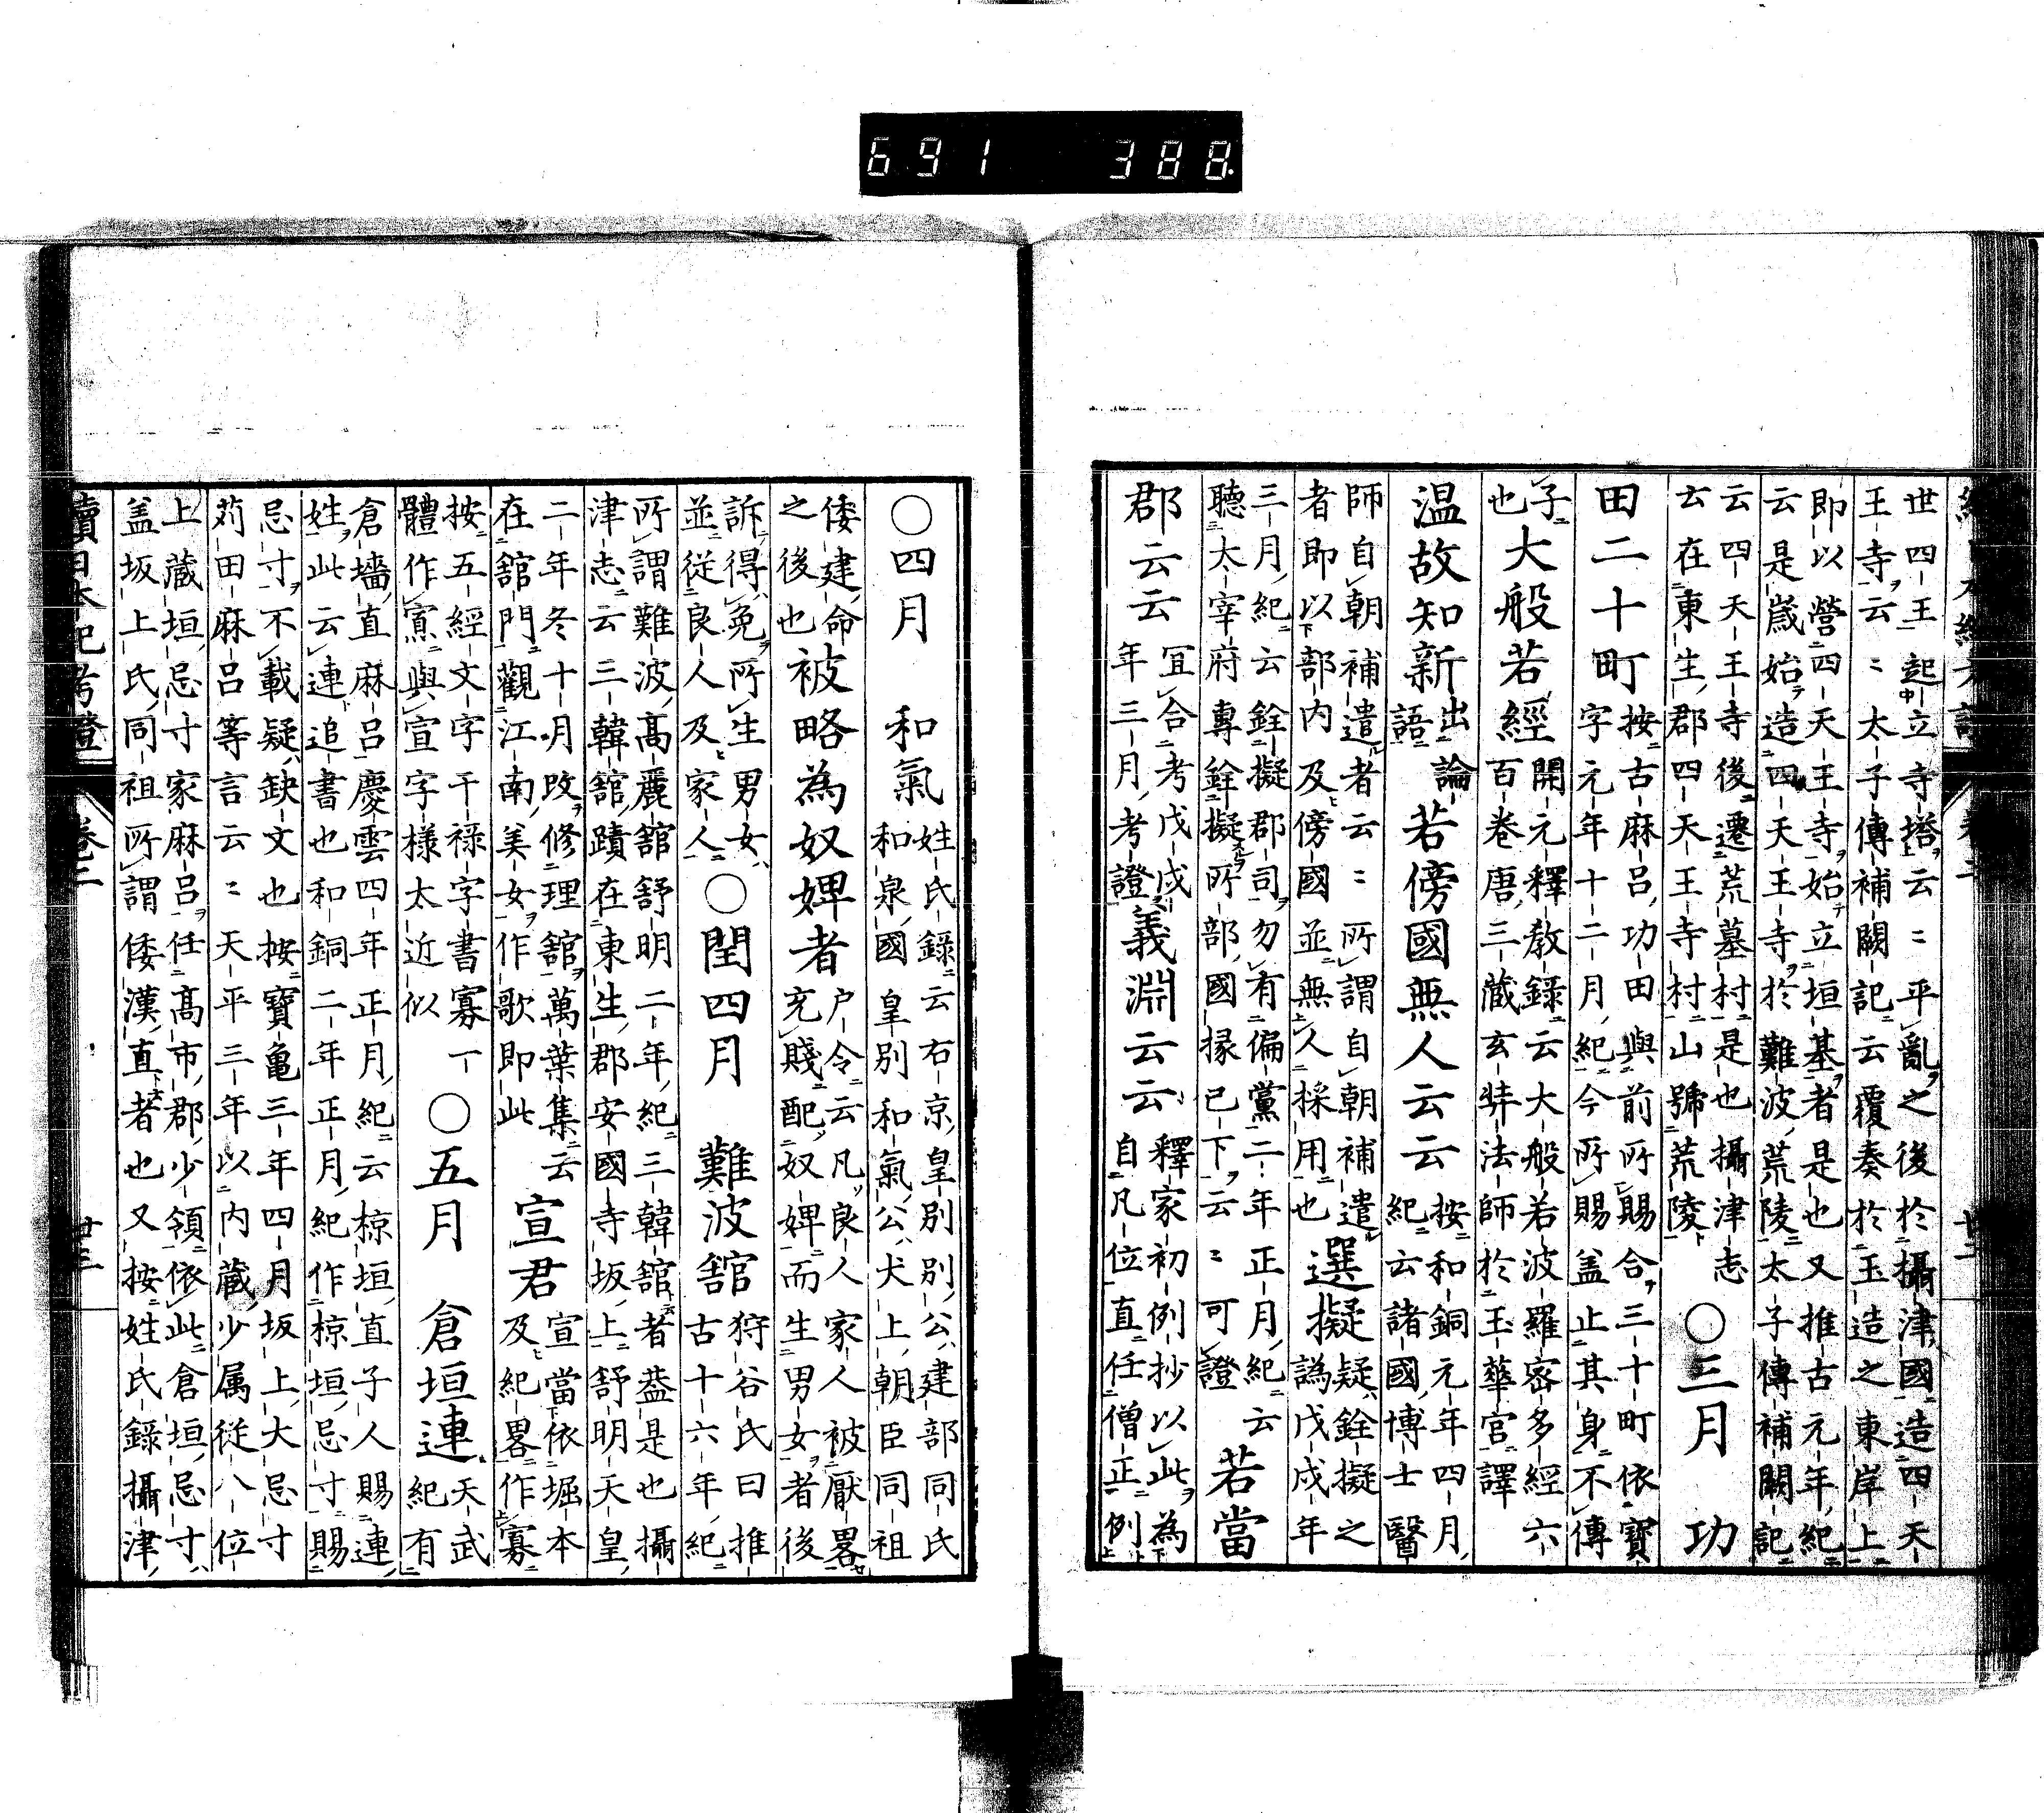 691 388
世四王起立寺塔云々平亂之後於攝津國造四天
王寺云々太子傳補闕記云覆奏於玉造之東岸上
即以營四天王寺始立垣基者是也又推古元年紀
云是歲始造四天王寺於難波荒陵太子傳補闕記
云四天王寺後遷荒墓村是也攝津志
云在東生郡四天王寺村山號荒陵
〇三月 功
田二十町
按古麻呂功田與前所賜合三十町依寶
字元年十二月紀今所賜盖止其身不傳
子
也
大般若經
開元釋教錄云大般若波羅密多經六
百卷唐三藏玄弉法師於玉華宮譯
温故知新
出論
語
若傍國無人云云
按和銅元年四月
紀云諸國博士醫
師自朝補遣者云々所謂自朝補遣
者即以部内及傍國並無人採用也
選擬
疑銓擬之
譌戊戌年
三月紀云銓擬郡司勿有偏黨二年正月紀云
聽太宰府專銓擬所部國掾已下云々可證
若當
郡云云
冝合考戊戌
年三月考證
義淵云云
釋家初例抄以此為
自凡位直任僧正例
〇四月 和氣
姓氏錄云右京皇別別公建部同氏
和泉國皇別和氣公犬上朝臣同祖
倭建命
之後也
被略為奴婢者
户令云凡良人家人被厭畧
充賤配奴婢而生男女者後
訴得免所生男女
並從良人及家人
〇閏四月 難波舘
狩谷氏曰推
古十六年紀
所謂難波高麗舘舒明二年紀三韓舘者盖是也攝
津志云三韓舘蹟在東生郡安國寺坂上舒明天皇
二年冬十月改修理舘萬葉集云
在舘門觀江南美女作歌即此
宣君
宣當依堀本
及紀畧作寡
按五經文字干禄字書寡ー
體作寡與宣字様太近似
〇五月 倉垣連
天武
紀有
倉墻直麻呂慶雲四年正月紀云椋垣直子人賜連
姓此云連追書也和銅二年正月紀作椋垣忌寸賜
忌寸不載疑缺文也按寶亀三年四月坂上大忌寸
苅田麻呂等言云々天平三年以内藏少属從八位
上藏垣忌寸家麻呂任髙市郡少領依此倉垣忌寸
盖坂上氏同祖所謂倭漢直者也又按姓氏錄攝津
續日本紀考證 卷二 廿三